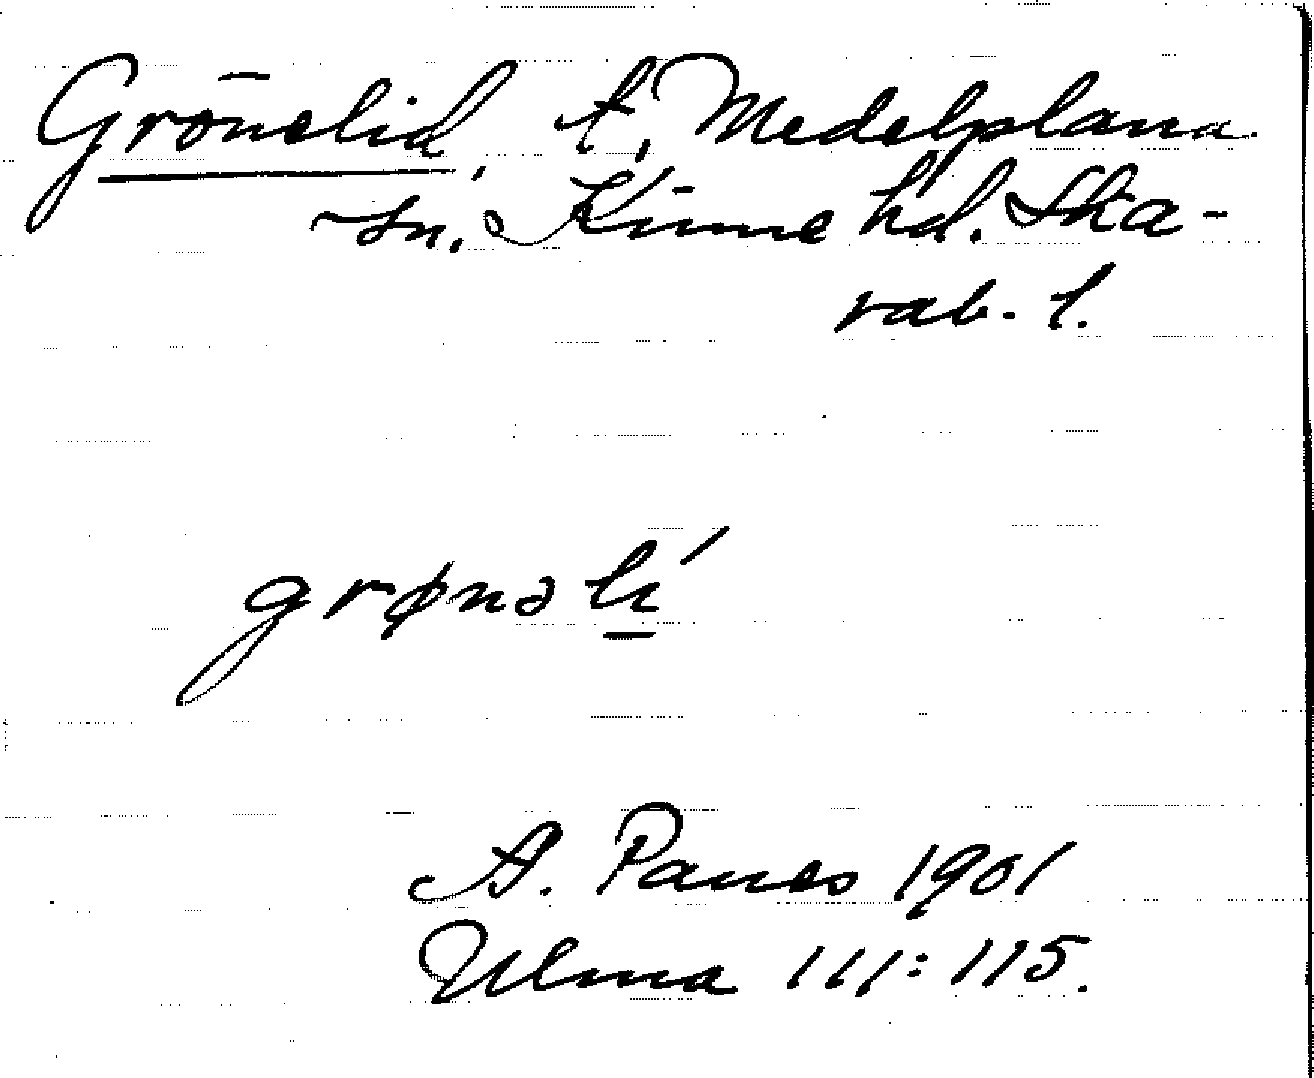 Grönelid, t, Medelplana
sn, Kinne hd. Ska-
rab. l.
grønəlí
A. Paues 1901
Ulma 111:115.